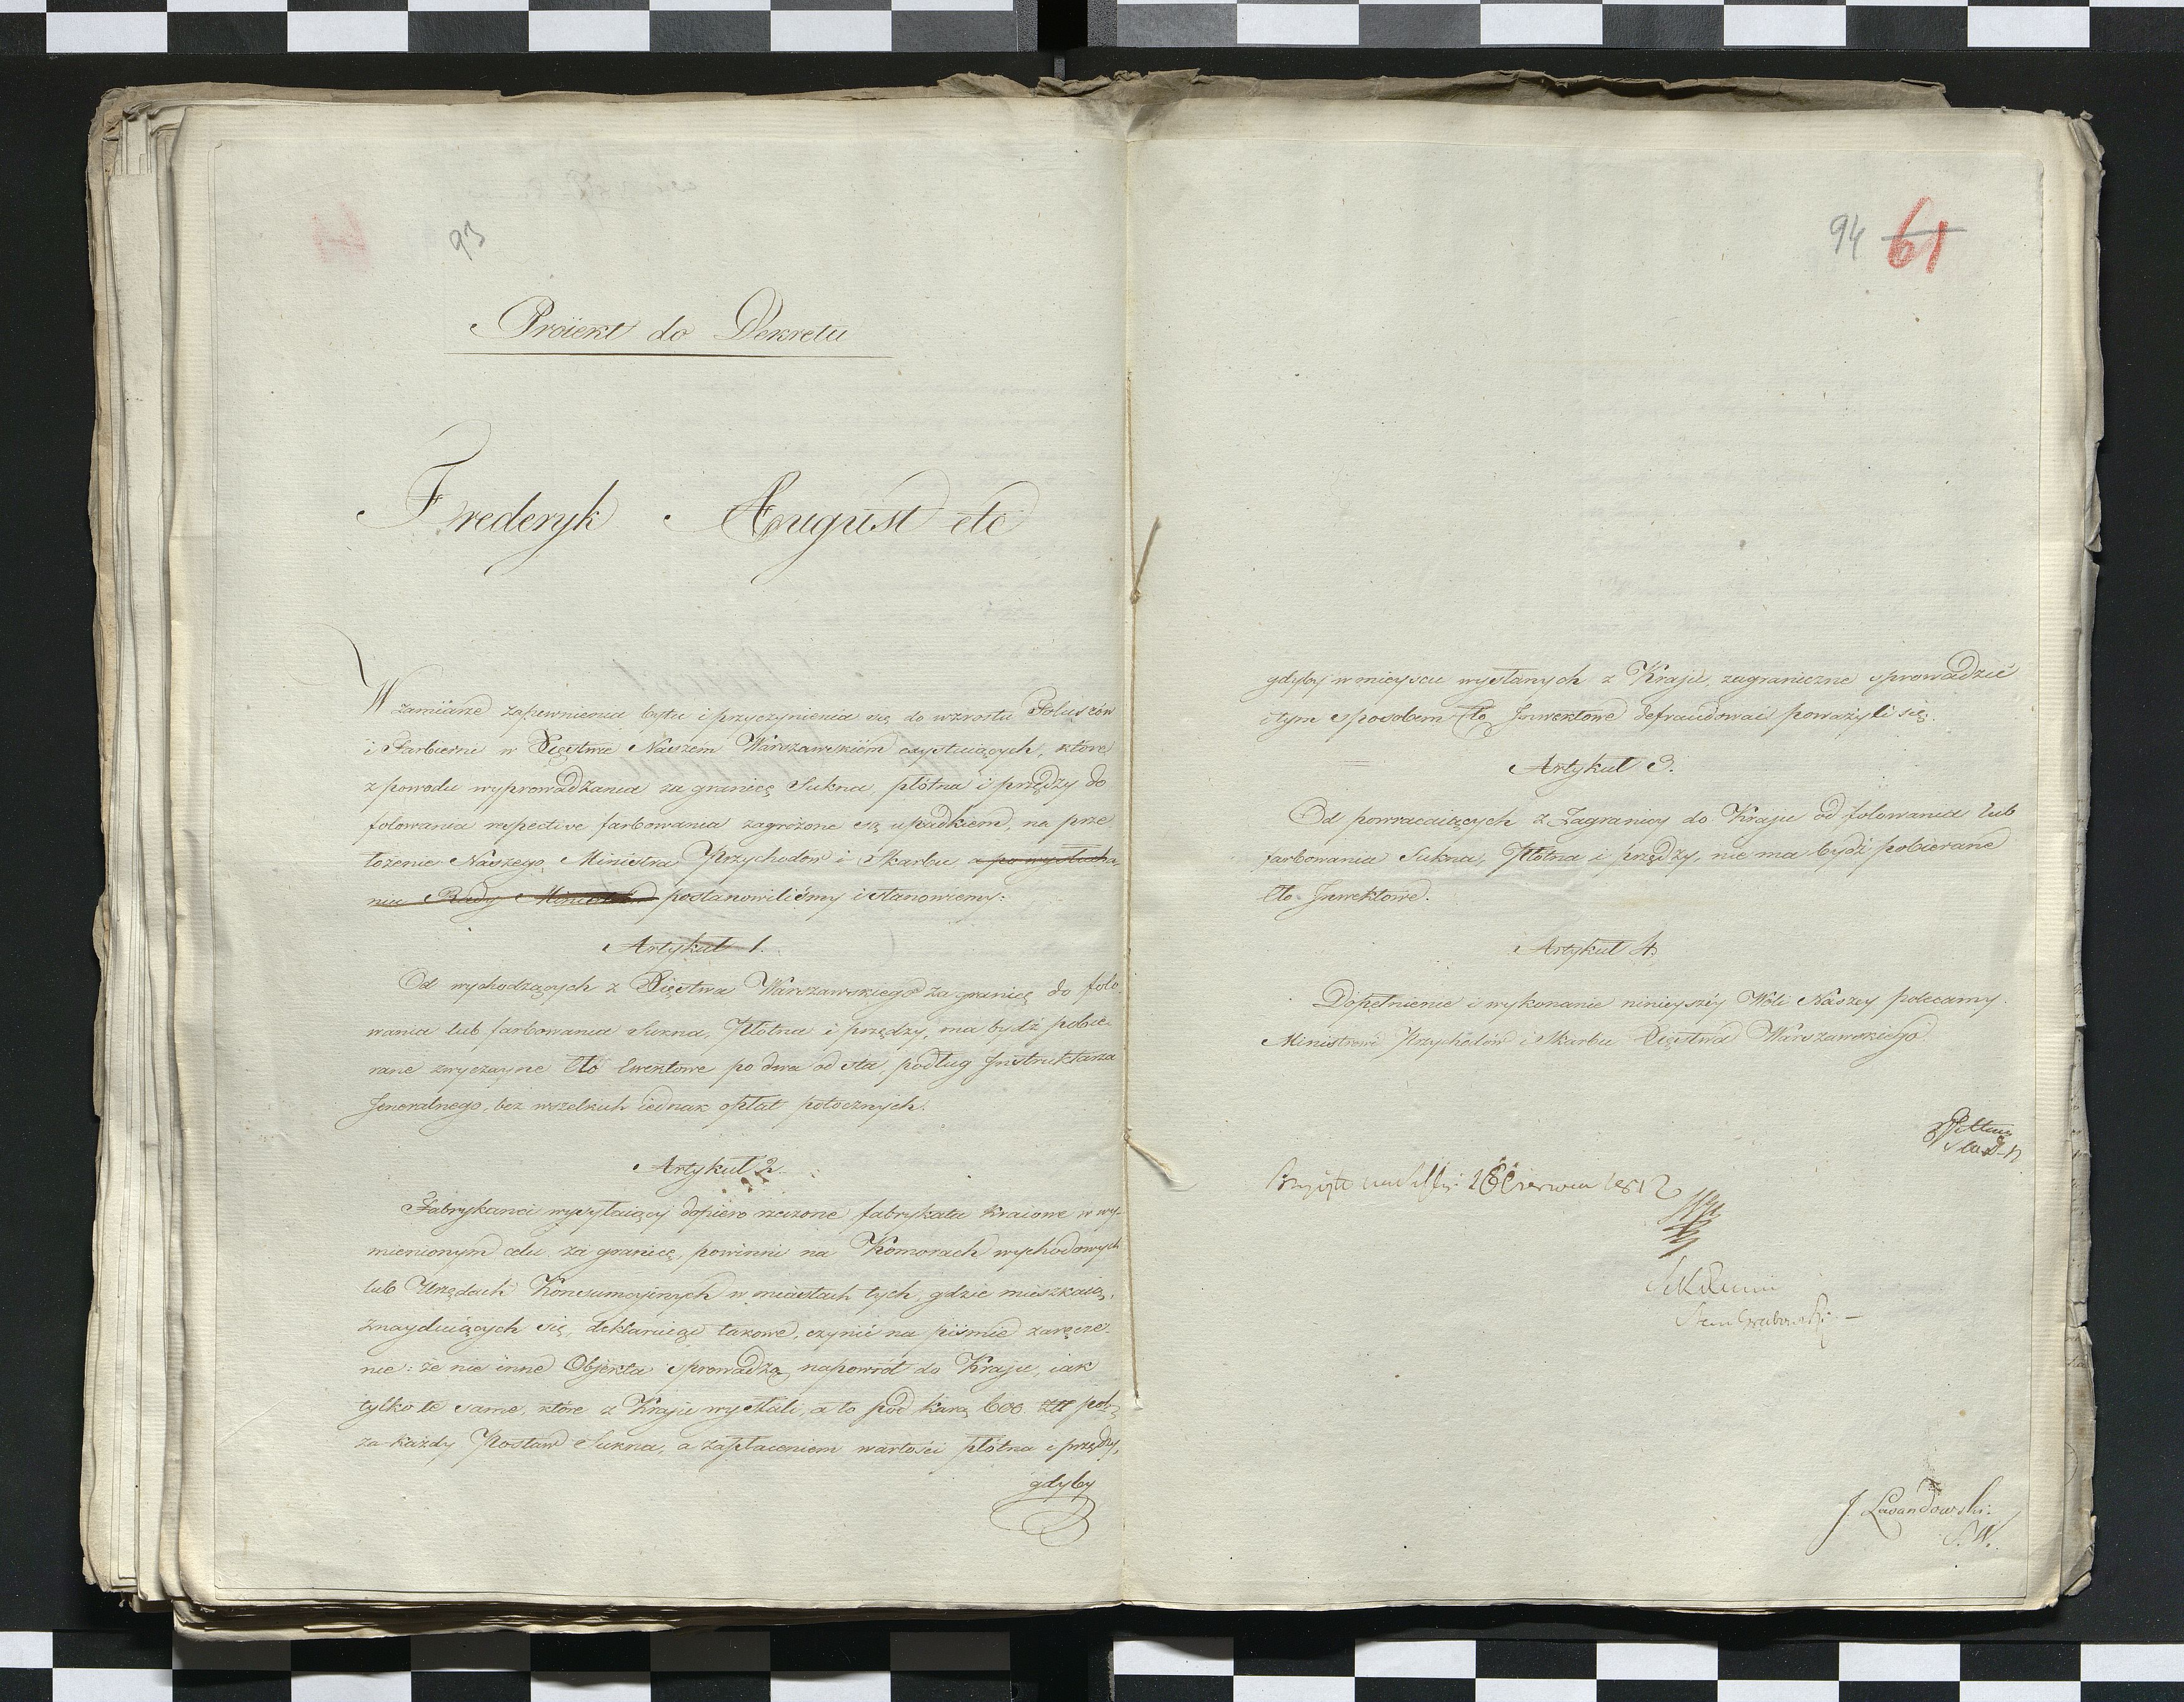 93
Proiekt do Dekretu
Frederyk August etc
W zamiarze zapewnienia bytu i przyczynienia się do wzrostu Foluszów
i Farbierni w Xięstwie Naszém Warszawskiém exystuiących, które
z powodu wyprowadzania za granicę Sukna, płótna i przędzy do
folowania respective farbowania zagrożone są upadkiem, na prze
łożenie Naszego Ministra Przychodów i Skarbu a po wysłucha
niu Rady Ministrów postanowiliśmy i stanowiemy:
Artykuł 1.
Od wychodzących z Xięstwa Warszawskiego za granicę do folo
wania lub farbowania Sukna, Płótna i przędzy, ma bydź pobie
rane zwyczayne Cło Ewektowe po dwa od sta, podług Instruktarza
Jeneralnego, bez wszelkich iednak opłat pobocznych.
Artykuł 2.
Fabrykanci wysyłaiący dopiero rzeczone fabrykata kraiowe w wy-
mienionym celu za granicę, powinni na Komorach wychodowych
lub Urzędach Konsumcyinych w miastach tych, gdzie mieszkaią,
znayduiących się, deklaruiąc takowe, czynić na piśmie zaręcze-
nie: że nie inne Objekta sprowadzą napowrót do Kraju, iak
tylko te same, które z Kraju wysłali, a to pod karą 600 Złł pol:
za każdy Postaw Sukna, a zapłaceniem wartości płótna i przędzy,
gdyby
94 61
gdyby w mieyscu wysłanych z Kraju, zagraniczne sprowadzić
i tym sposobem Cło Inwektowe defraudować poważyli się.
Artykuł 3.
Od powracaiących z Zagranicy do Kraju od folowania lub
farbowania Sukna, Płótna i przędzy, nie ma bydź pobierane
Cło Inwektowe.
Artykuł 4.
Dopełnienie i wykonanie ninieyszéy Woli Naszey polecamy
Ministrowi Przychodów i Skarbu Xięstwa Warszawskiego
Czerwca 1812
Stan Grabowski
J. Lewandowski.
S. W.